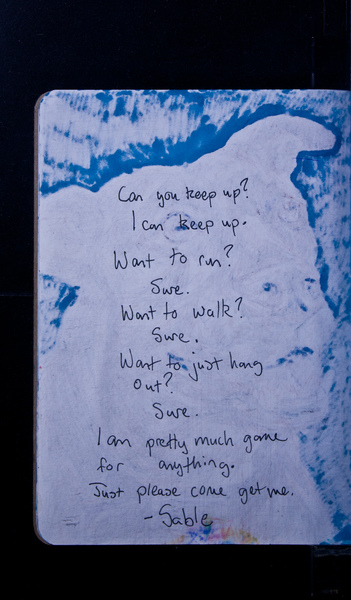 Can you keep up?
I can keep up.
Want to run?
Sure.
Want to walk?
Sure.
Want to just hang
out?
Sure.
I am pretty much game
for anything.
Just please come get me.
-Sable